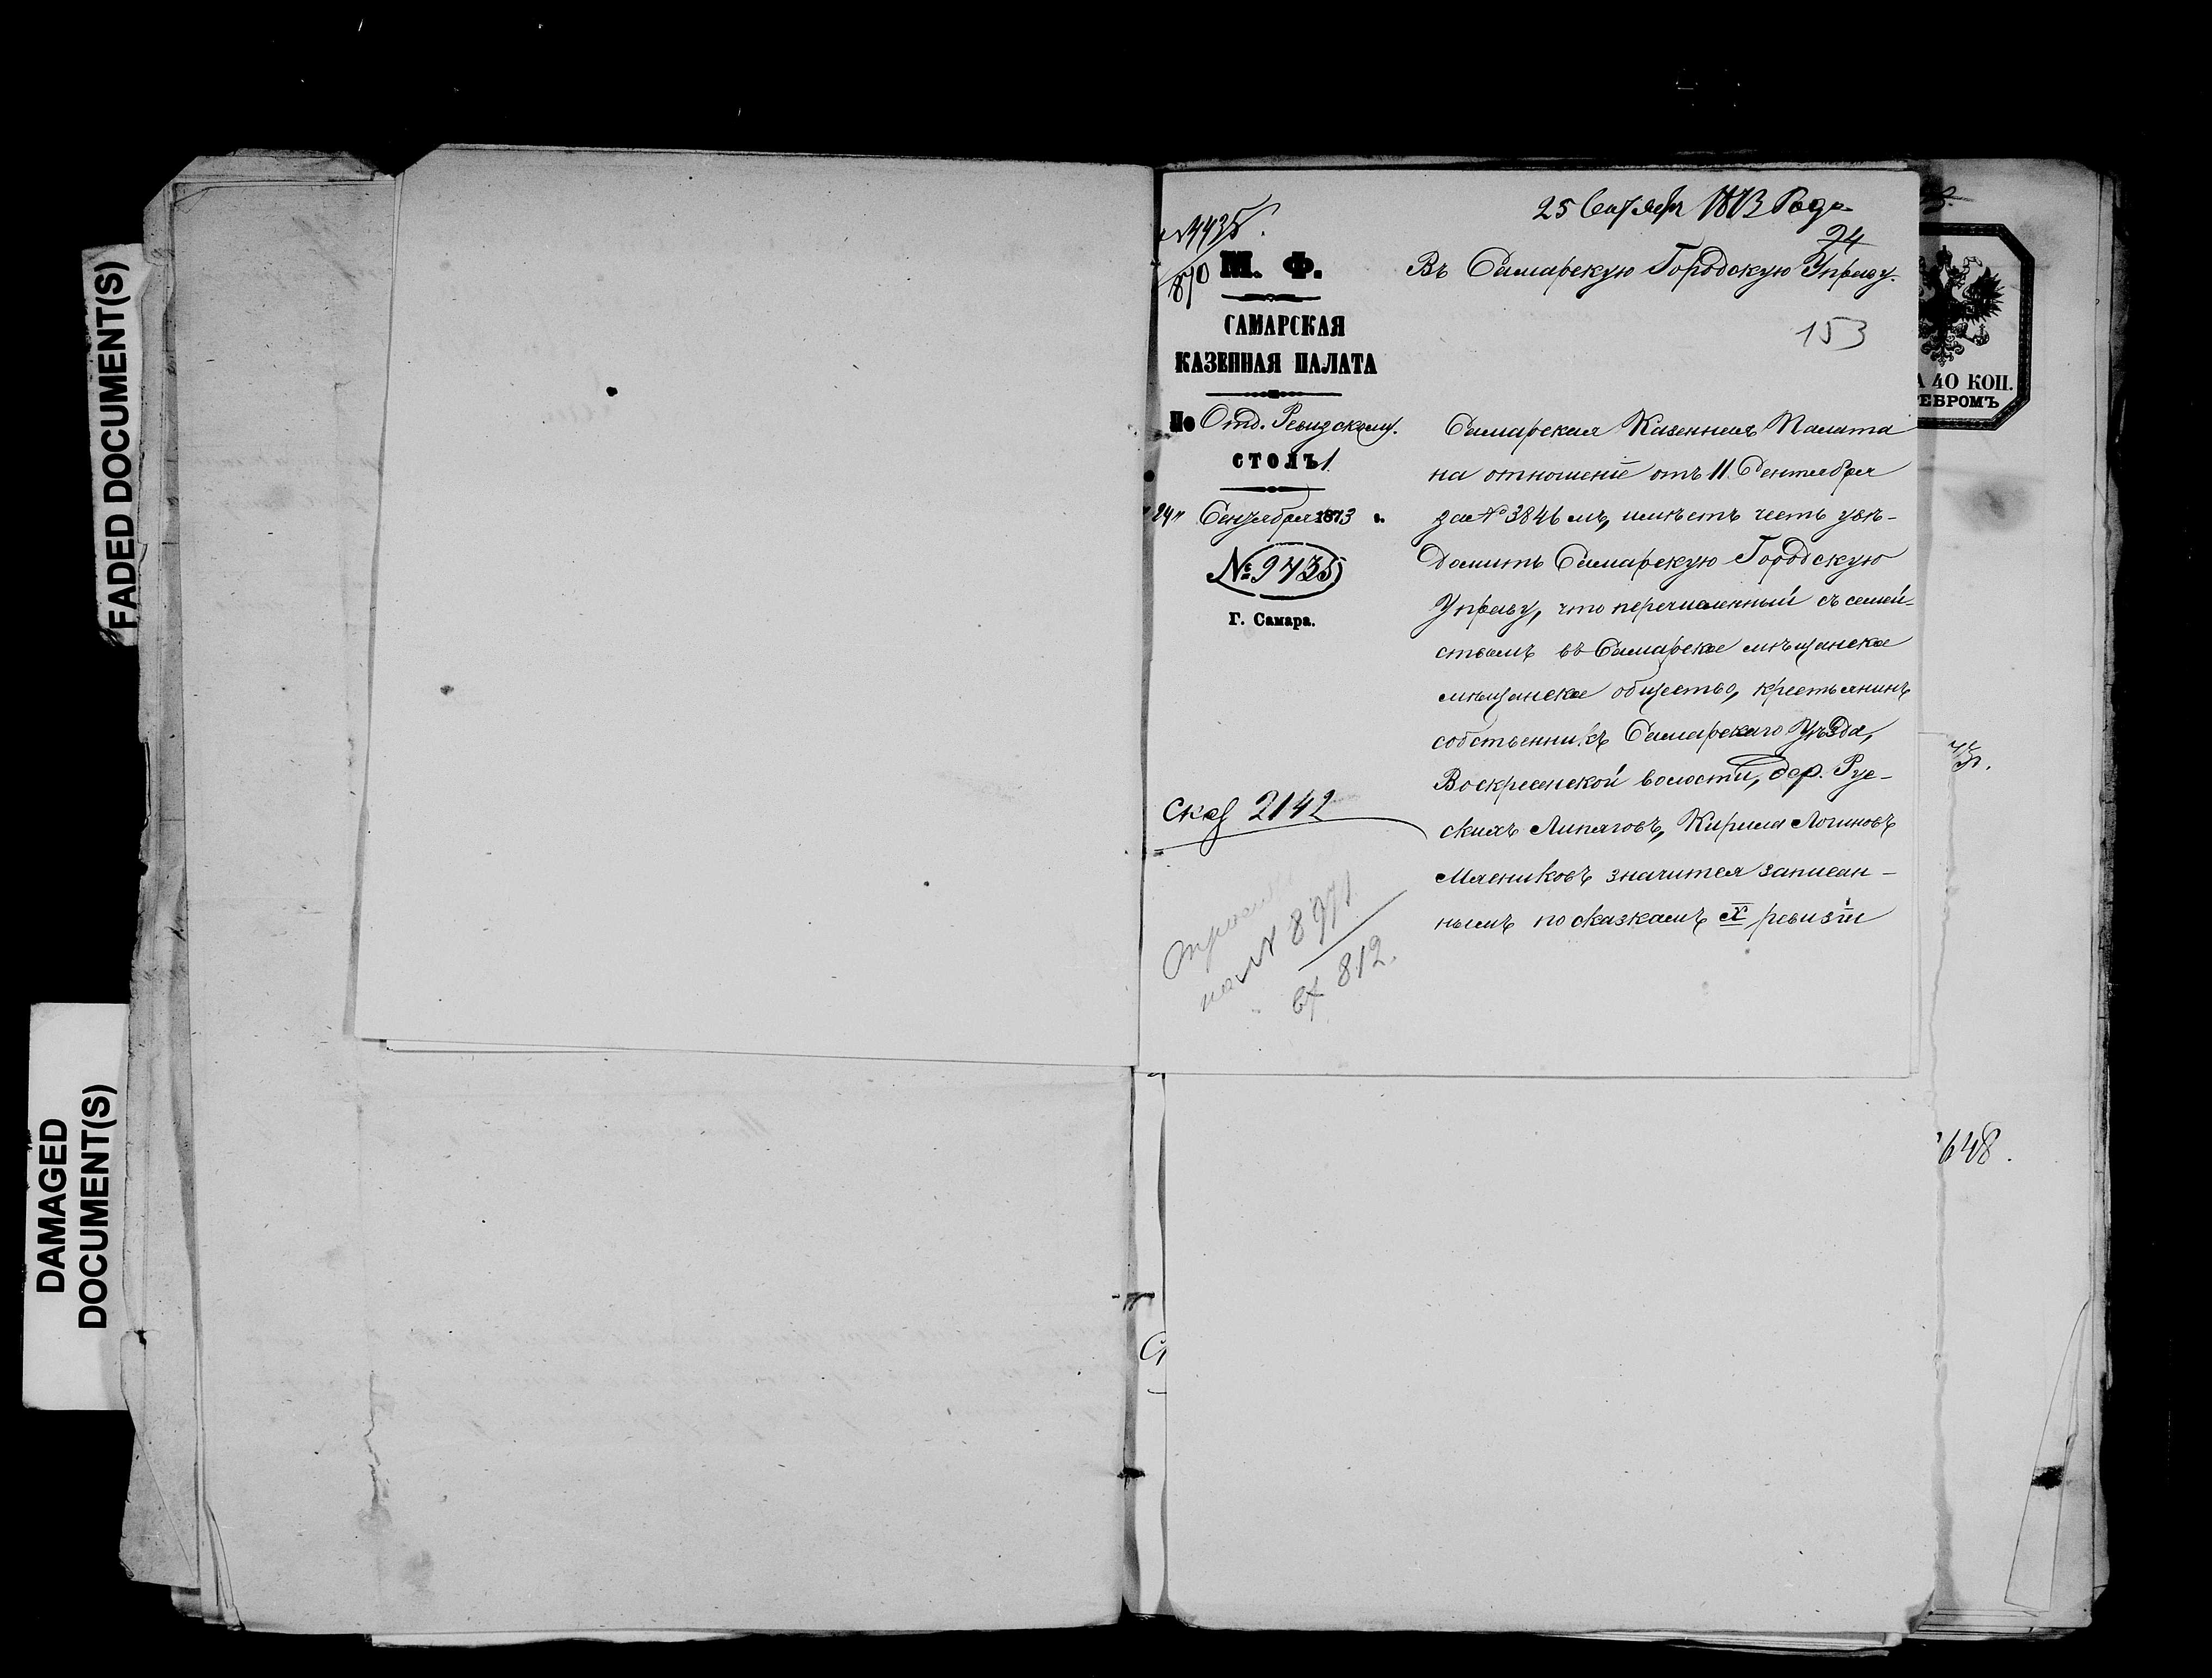 FADED DOCUMENT(S)
DAMAGED
DOCUMENT(S)
25 Сентября 1873 Года
№ 4435.
870
24
М. Ф.
САМАРСКАЯ
КАЗЕННАЯ ПАЛАТА
По Отд. Ревизскому.
СТОЛЪ 1
24 " Сентября 1873 г.
№ 9735
Г. Самара.
Въ Самарскую Городскую Управу.
153
Самарская Казенная Палата
на отношеніе отъ 11 Сентября
за № 3846 мъ, имѣетъ честь увѣ-
домить Самарскую Городскую
Управу, что перечисленный съ семей-
ствомъ въ Самарское мѣщанское
мѣщанское общество, крестьянинъ
собственникъ Самарскаго Уѣзда,
Воскресенской волости, дер. Рус-
скихъ Липяговъ, Кирила Логиновъ
Мясниковъ значится записан-
нымъ по сказкамъ X ревизіи
Сказ 2142
на № 8971
вх 812.
А 40 КОП.
ЕБРОМЪ
648.